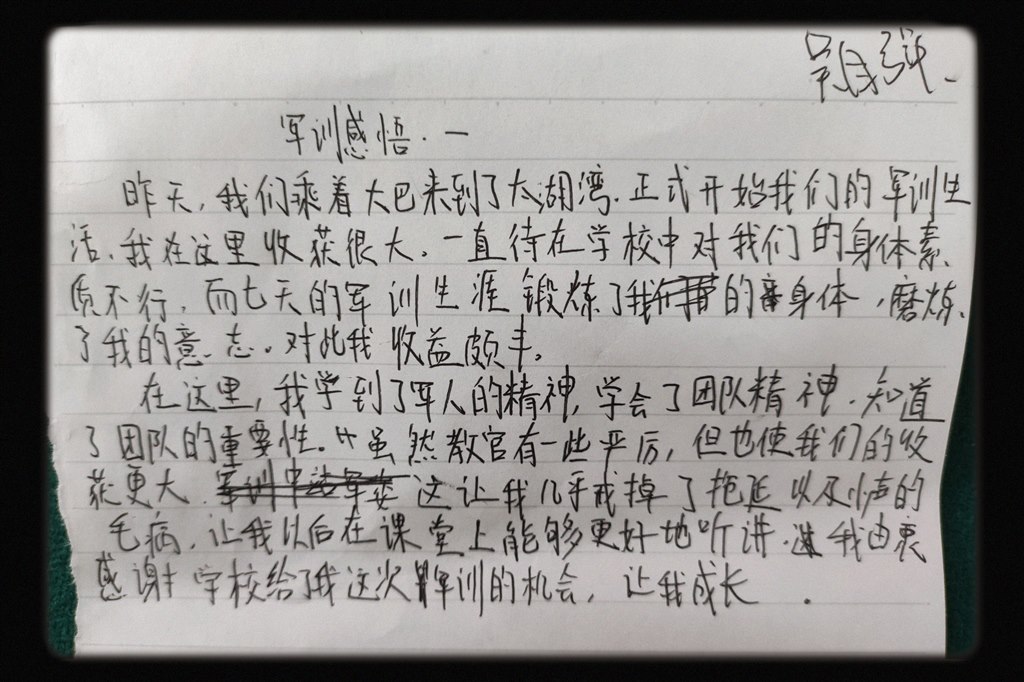 军训感悟.一
昨天,我们乘着大巴来到了太湖湾.正式开始我们的军训生
活、我在这里收获很大。一直待在学校中对我们的身体素
质不行,而七天的军训生涯锻炼了我的身体,磨炼
了我的意志。对此我收益颇丰。
在这里,我学到了军人的精神,学会了团队精神.知道
了团队的重要性。虽然教官有一些严厉,但也使我们的收
获更大.这让我几乎戒掉了拖延以及小声的
毛病,让我以后在课堂上能够更好地听讲.我由衷
感谢学校给了我这次军训的机会,让我成长.